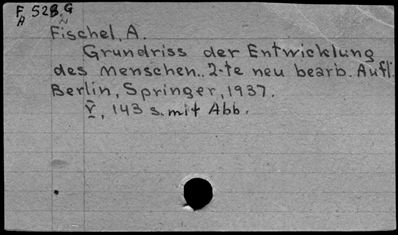 F 528.G
A N
Fischel, A.
Grundriss der Entwicklung
des Menschen.. 2-te neu bearb. Aufl.
Berlin, Springer, 1937.
V, 143 s. mit Abb.